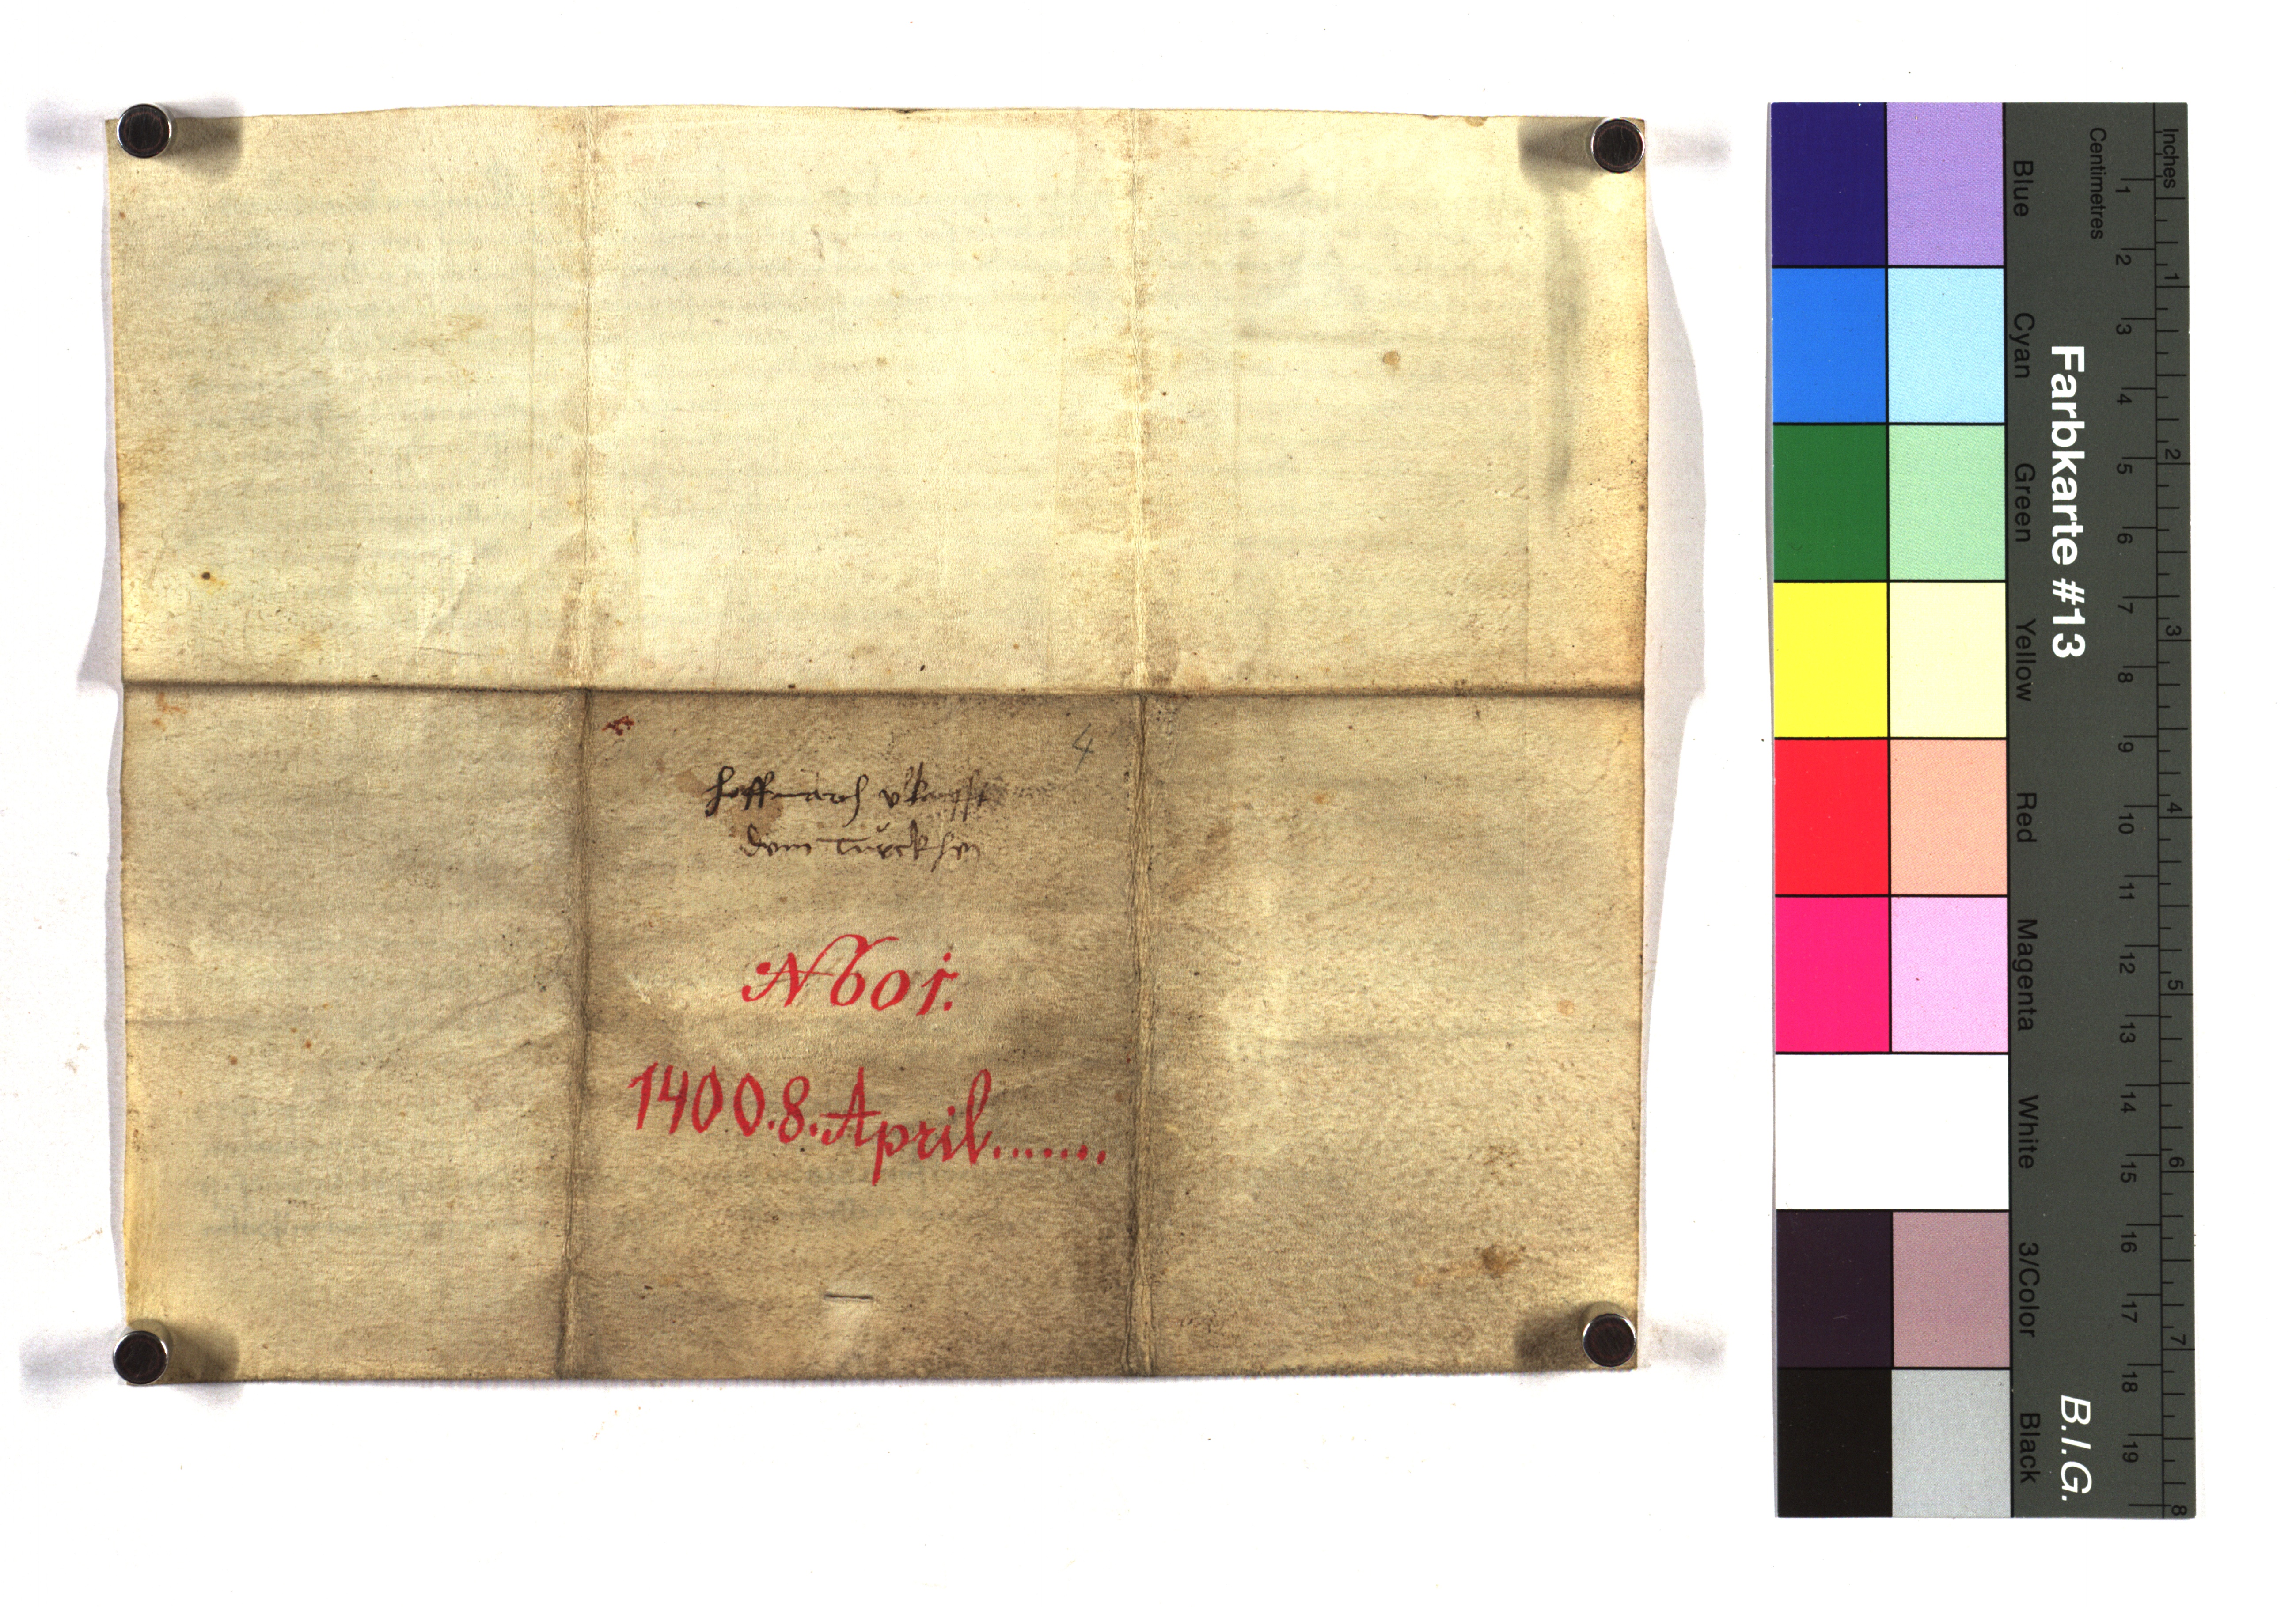 4
hoffmarch vkaufft
dem Türcksen
N 601.
1400.8.April.......
Inches
Centimetres
1 2 3 4 5 6 7 8 9 10 11 12 13 14 15 16 17 18 19
1 2 3 4 5 6 7 8
Farbkarte #13
B.I.G.
Blue
Cyan
Green
Yellow
Red
Magenta
White
3/Color
Black